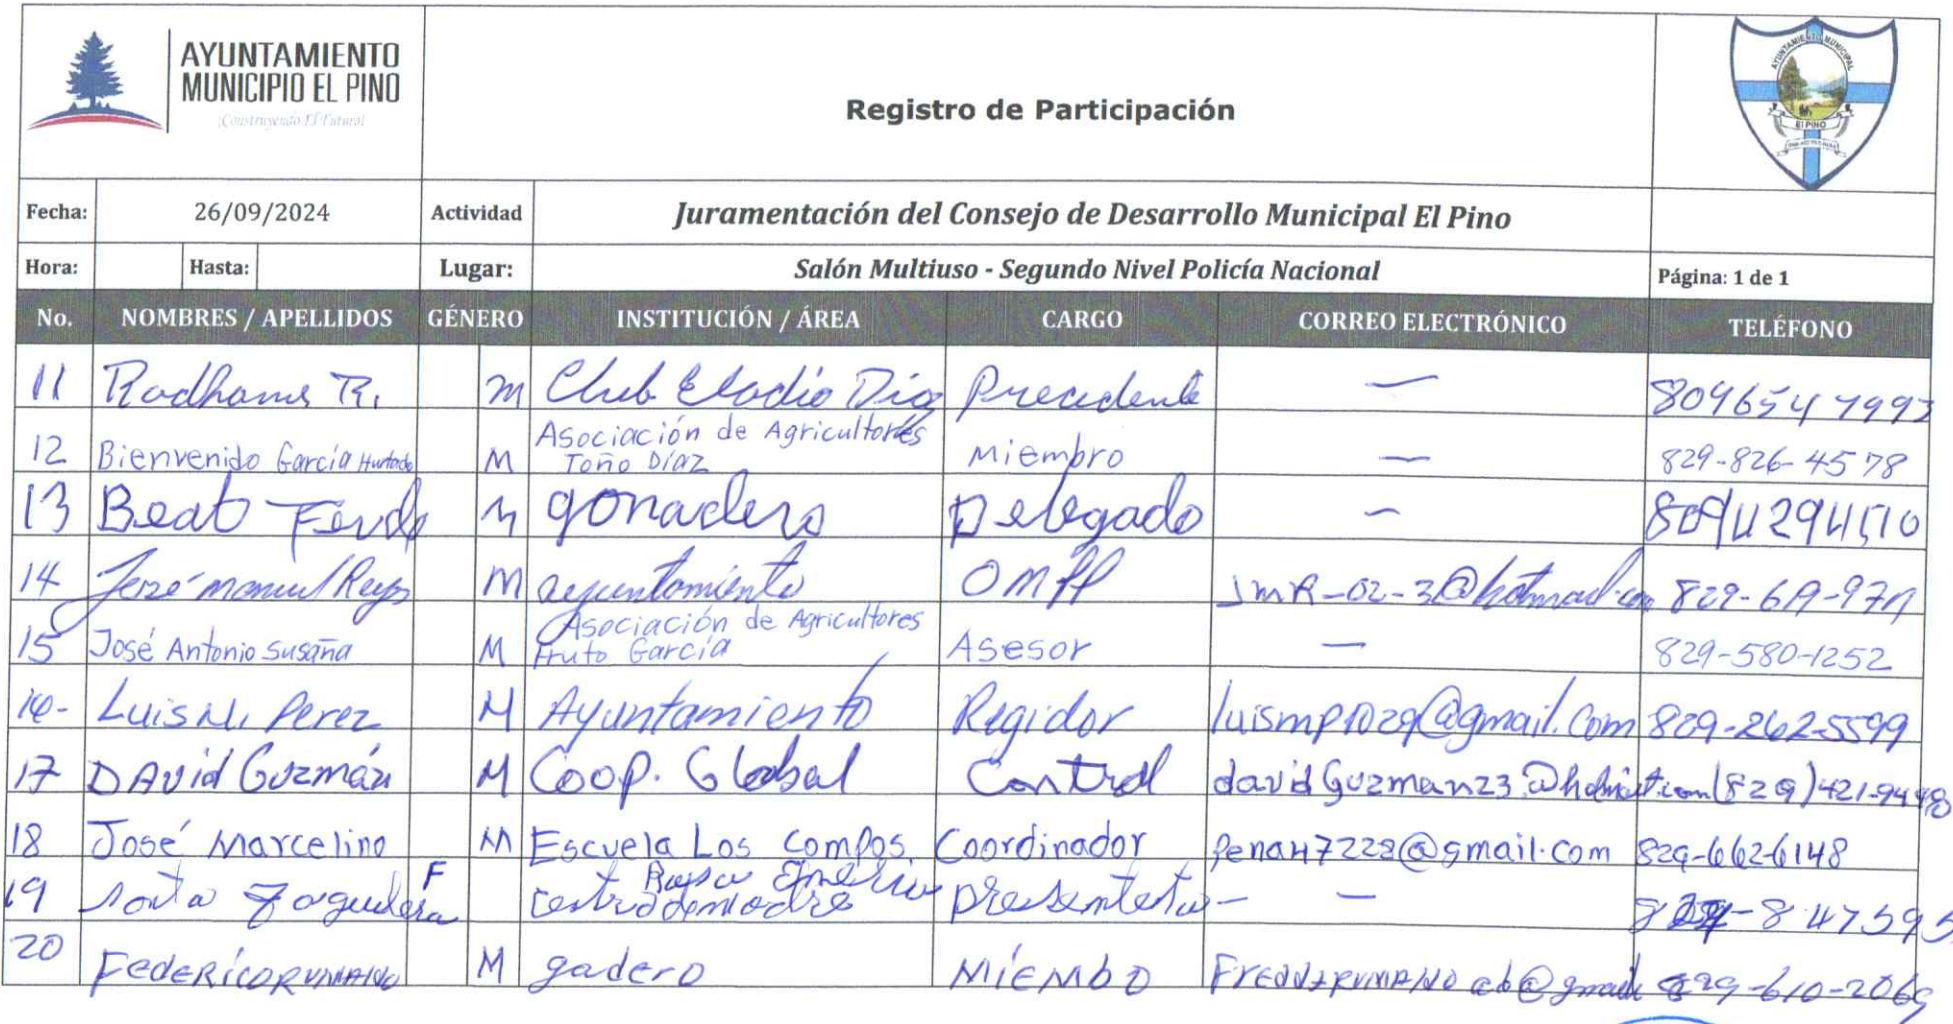 AYUNTAMIENTO
MUNICIPIO EL PINO
¡Construyendo El Futuro!
Registro de Participación
AYUNTAMIENTO MUNICIPAL
El PINO
Fecha: 26/09/2024 Actividad Juramentación del Consejo de Desarrollo Municipal El Pino
Hora: Hasta: Lugar: Salón Multiuso - Segundo Nivel Policía Nacional Página: 1 de 1
No. NOMBRES / APELLIDOS GÉNERO INSTITUCIÓN / ÁREA CARGO CORREO ELECTRÓNICO TELÉFONO
11 Radhams R. m Club Eladio Precedente — 8096547993
12 Bienvenido García Hurtado M Asociación de Agricultores Toño Díaz Miembro — 829-826-4578
13 Beat M gonadero Delegado —
14 José manuel Reyes M ayuntamiento OMPP JmR-02-3@hotmail.com
15 José Antonio Susaña M Asociación de Agricultores Fruto García Asesor — 829-580-1252
16- Luis M. Perez M Ayuntamiento Regidor luismp1029@gmail.Com 829-262-5599
17 DAvid Guzmán M Coop. Global Control (829)421-9448
18 José Marcelino M Escuela Los Compos. Coordinador 829-662-6148
19 F — —
20 FedERico M gadero MiEMbO 829-610-2069